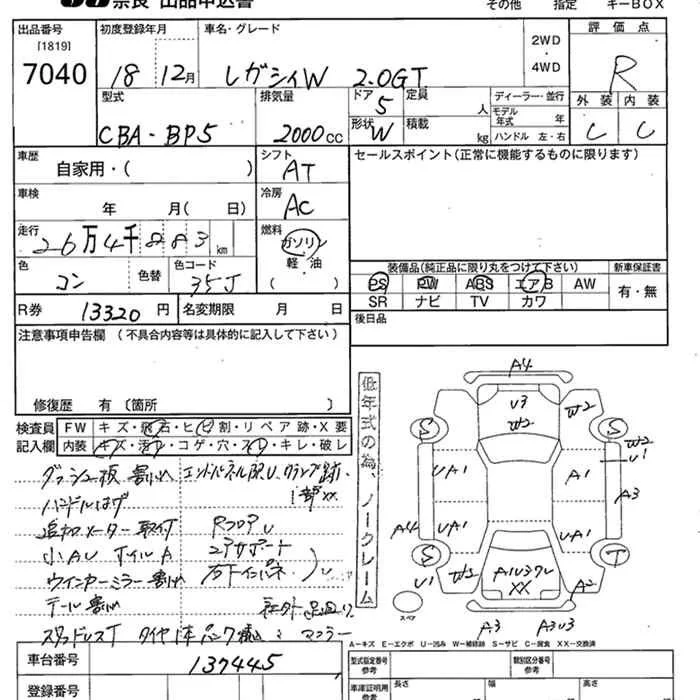 奈良 出品申込書 その他 指定 キーBOX
出品番号 初度登録年月 車名・グレード 評価点
[1819]
7040 18 12月 レガシィW 2.0GT 2WD・4WD R
型式 排気量 ドア 定員 ディーラー・並行 外装 内装
5 人 モデル年式 年
CBA-BP5 2000cc 形状 W 積載 kg ハンドル 左・右 C C
車歴 シフト セールスポイント(正常に機能するものに限ります)
自家用・( ) AT
車検 冷房
年 月( 日) AC
走行 燃料
26万4千883km ガソリン
軽・油
( )
色 色替 色コード 装備品(純正品に限り丸をつけて下さい) 新車保証書
コン 35J PS PW ABS エアB AW 有・無
SR ナビ TV カワ
R券 13320円 名変期限 月 日 後日品
注意事項申告欄 (不具合内容等は具体的に記入して下さい)
修復歴 有〔箇所 〕
検査員 FW キズ・飛石・ヒビ割・リペア跡・X要
記入欄 内装 キズ・汚れ・コゲ・穴・スレ・キレ・破レ
ダッシュ板 割れ エンドパネル亞U クランプ跡、
ハンドルはげ 1部XX
追加メーター取付 RフロアU
小AU ホイルA コアサポート
ウインカーミラー割れ 右下インパネ )U
テール割れ 社外
スタッドレスT タイヤ1本パンク マフラー
低年式の為、ノークレーム
A4
V3
W2
W2
S
S
W2
U1
UA1
A1
A3
A4
UA1
UA1
S
T
U1
W2
A1U3ワレ
XX
A2
スペア
A3
A3U3
A=キズ E=エクボ U=凹み W=補修跡 S=サビ C=腐食 XX=交換済
車台番号 137445
型式指定番号 参考 類別区分番号 参考
登録番号 車庫証明用 参考 長さ 幅 高さ